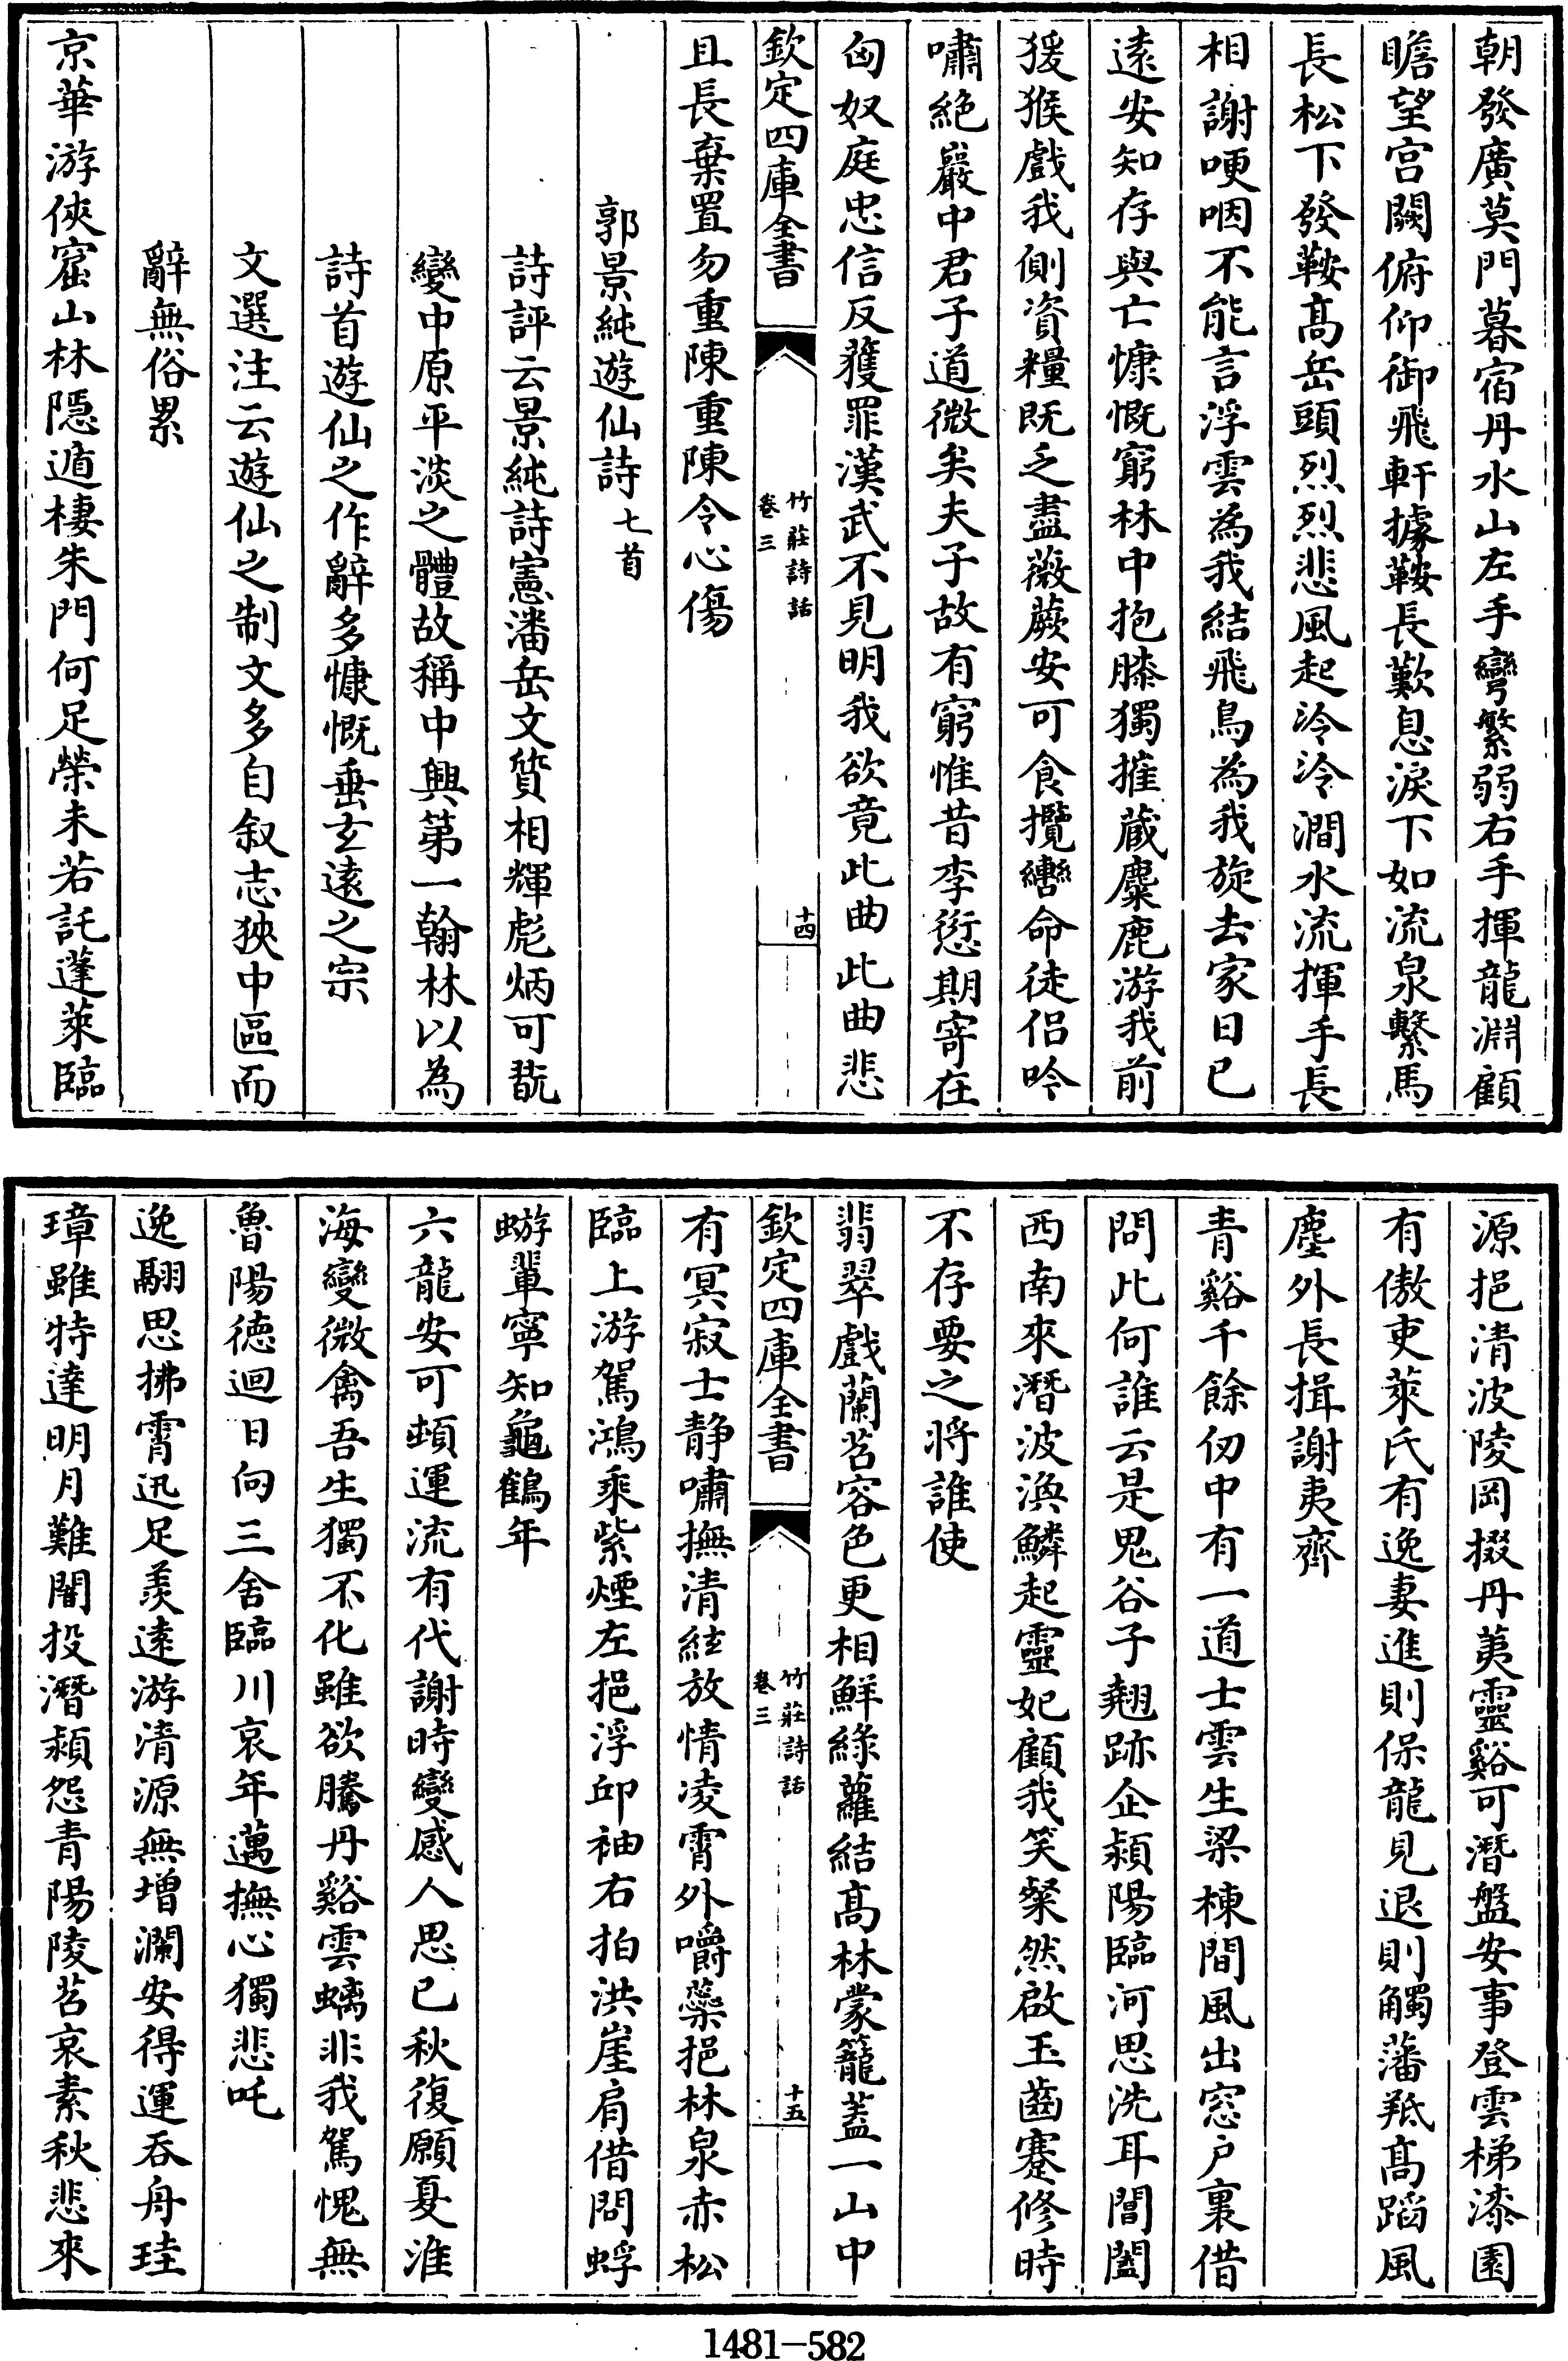 朝發廣莫門暮宿丹水山左手彎繁弱右手揮龍淵顧
瞻望宫闕俯仰御飛軒據鞍長歎息淚下如流泉繫馬
長松下發鞍髙岳頭烈烈悲風起泠泠澗水流揮手長
相謝哽咽不能言浮雲為我結飛鳥為我旋去家日已
逺安知存與亡慷慨窮林中抱膝獨摧蔵麋鹿游我前
猨猴戲我側資糧既乏盡薇蕨安可食攬轡命徒侣吟
嘯絶巖中君子道微矣夫子故有窮惟昔李愆期寄在
匈奴庭忠信反獲罪漢武不見明我欲竟此曲此曲悲
欽定四庫全書
竹莊詩話
卷三
十四
且長棄置勿重陳重陳令心傷
郭景純遊仙詩七首
詩評云景純詩憲潘岳文質相輝彪炳可翫
變中原平淡之體故稱中興第一翰林以為
詩首遊仙之作辭多慷慨垂𤣥逺之宗
文選注云遊仙之制文多自叙志狹中區而
辭無俗累
京華游俠窟山林隠遁棲朱門何足榮未若託蓬萊臨
源挹清波陵岡掇丹荑靈谿可潛盤安事登雲梯漆園
有傲吏萊氏有逸妻進則保龍見退則觸藩羝髙蹈風
塵外長揖謝夷齊
青谿千餘仞中有一道士雲生梁棟間風出窓户裏借
問此何誰云是鬼谷子翹跡企潁陽臨河思洗耳閶闔
西南來潛波渙鱗起靈妃顧我笑粲然啟玉齒蹇修時
不存要之将誰使
翡翠戲蘭苕容色更相鮮緑蘿結髙林蒙籠蓋一山中
欽定四庫全書
竹莊詩話
卷三
十五
有冥寂士静嘯撫清絃放情凌霄外嚼蘂挹林泉赤松
臨上游駕鴻乘紫煙左挹浮邱袖右拍洪崖肩借問蜉
蝣輩寧知龜鶴年
六龍安可頓運流有代謝時變感人思已秋復願夏淮
海變微禽吾生獨不化雖欲騰丹谿雲螭非我駕愧無
魯陽徳迴日向三舍臨川哀年邁撫心獨悲吒
逸翮思拂霄迅足羡逺游清源無増瀾安得運吞舟珪
璋雖特達明月難闇投潛潁怨青陽陵苕哀素秋悲來
1481-582